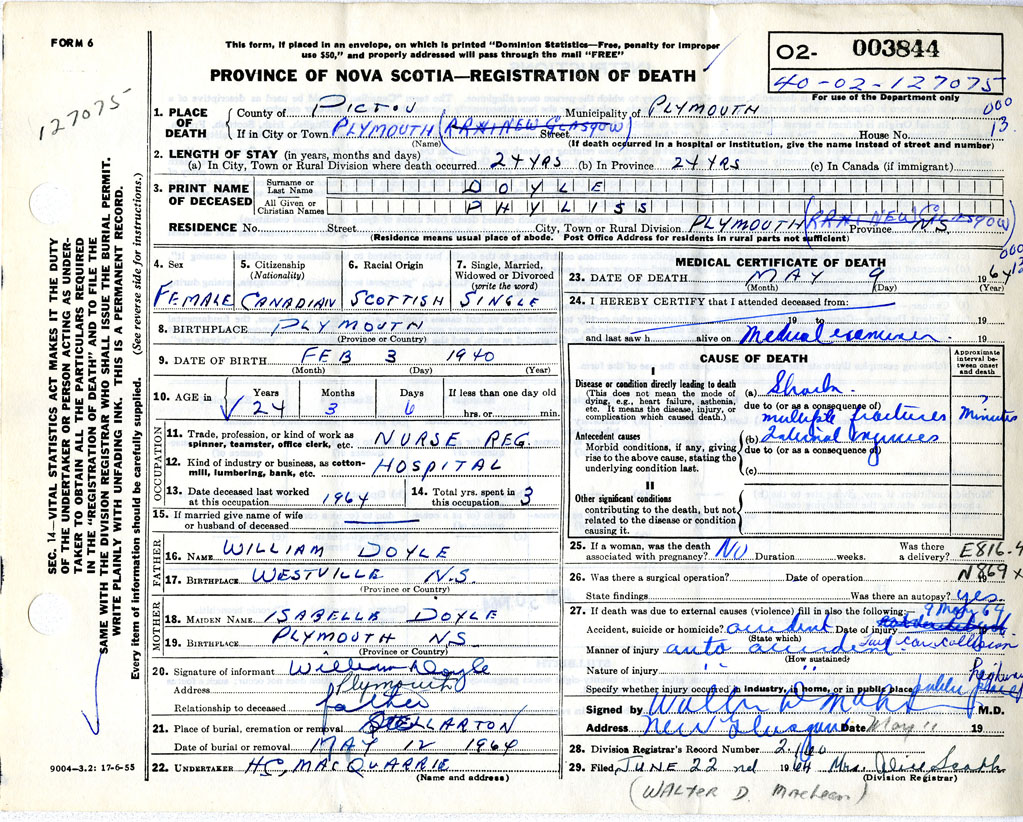 FORM 6
This form, if placed in an envelope, on which is printed "Dominion Statistics—Free, penalty for improper
use $50," and properly addressed will pass through the mail "FREE"
PROVINCE OF NOVA SCOTIA—REGISTRATION OF DEATH
02- 003844
40-02-127075
For use of the Department only
127075
SEC. 14—VITAL STATISTICS ACT MAKES IT THE DUTY
OF THE UNDERTAKER OR PERSON ACTING AS UNDER-
TAKER TO OBTAIN ALL THE PARTICULARS REQUIRED
IN THE "REGISTRATION OF DEATH" AND TO FILE THE
SAME WITH THE DIVISION REGISTRAR WHO SHALL ISSUE THE BURIAL PERMIT.
WRITE PLAINLY WITH UNFADING INK. THIS IS A PERMANENT RECORD.
Every item of information should be carefully supplied. (See reverse side for instructions.)
1. PLACE OF DEATH
County of PICTOU Municipality of PLYMOUTH 000
If in City or Town PLYMOUTH (RR#1 NEW GLASGOW) Street House No. 13
(Name) (If death occurred in a hospital or institution, give the name instead of street and number)
2. LENGTH OF STAY (in years, months and days)
(a) In City, Town or Rural Division where death occurred 24 YRS (b) In Province 24 YRS (c) In Canada (if immigrant)
3. PRINT NAME OF DECEASED
Surname or Last Name DOYLE
All Given or Christian Names PHYLISS
RESIDENCE No. Street City, Town or Rural Division PLYMOUTH (RR#1 NEW GLASGOW) Province N.S.
(Residence means usual place of abode. Post Office Address for residents in rural parts not sufficient)
000
13
4. Sex
FEMALE
5. Citizenship
(Nationality)
CANADIAN
6. Racial Origin
SCOTTISH
7. Single, Married,
Widowed or Divorced
(write the word)
SINGLE
8. BIRTHPLACE PLYMOUTH
(Province or Country)
9. DATE OF BIRTH FEB 3 1940
(Month) (Day) (Year)
10. AGE in
Years Months Days If less than one day old
24 3 6 hrs. or min.
OCCUPATION
11. Trade, profession, or kind of work as
spinner, teamster, office clerk, etc. NURSE REG.
12. Kind of industry or business, as cotton-
mill, lumbering, bank, etc. HOSPITAL
13. Date deceased last worked
at this occupation 1964
14. Total yrs. spent in
this occupation 3
15. If married give name of wife
or husband of deceased
FATHER
16. NAME WILLIAM DOYLE
17. BIRTHPLACE WESTVILLE N.S
(Province or Country)
MOTHER
18. MAIDEN NAME ISABELLA DOYLE
19. BIRTHPLACE PLYMOUTH N.S
(Province or Country)
20. Signature of informant William Doyle
Address Plymouth
Relationship to deceased father
21. Place of burial, cremation or removal STELLARTON
Date of burial or removal MAY 12 1964
22. UNDERTAKER H.C. MACQUARRIE
(Name and address)
9004—3.2: 17-6-55
MEDICAL CERTIFICATE OF DEATH
23. DATE OF DEATH MAY 9 1964
(Month) (Day) (Year)
24. I HEREBY CERTIFY that I attended deceased from:
19 to 19
and last saw h alive on Medical examiner 19
CAUSE OF DEATH
Approximate
interval be-
tween onset
and death
I
Disease or condition directly leading to death
(This does not mean the mode of
dying, e.g., heart failure, asthenia,
etc. It means the disease, injury, or
complication which caused death.)
(a) Shock ?
due to (or as a consequence of)
multiple fractures Minutes
Antecedent causes
Morbid conditions, if any, giving
rise to the above cause, stating the
underlying condition last.
(b) Internal injuries
due to (or as a consequence of)
(c)
II
Other significant conditions
contributing to the death, but not
related to the disease or condition
causing it.
25. If a woman, was the death
associated with pregnancy? No Duration weeks. Was there
a delivery? E816.4
26. Was there a surgical operation? Date of operation N869x
State findings Was there an autopsy? yes
27. If death was due to external causes (violence) fill in also the following:— 9 May 64
Accident, suicide or homicide? accident Date of injury
(State which)
Manner of injury auto accident car collision
(How sustained)
Nature of injury " " highway
Specify whether injury occurred in industry, in home, or in public place public place
Signed by M.D.
Address New Glasgow Date May 11 19
28. Division Registrar's Record Number
29. Filed JUNE 22nd 1964 Mrs.
(Division Registrar)
(WALTER D. MacLean)